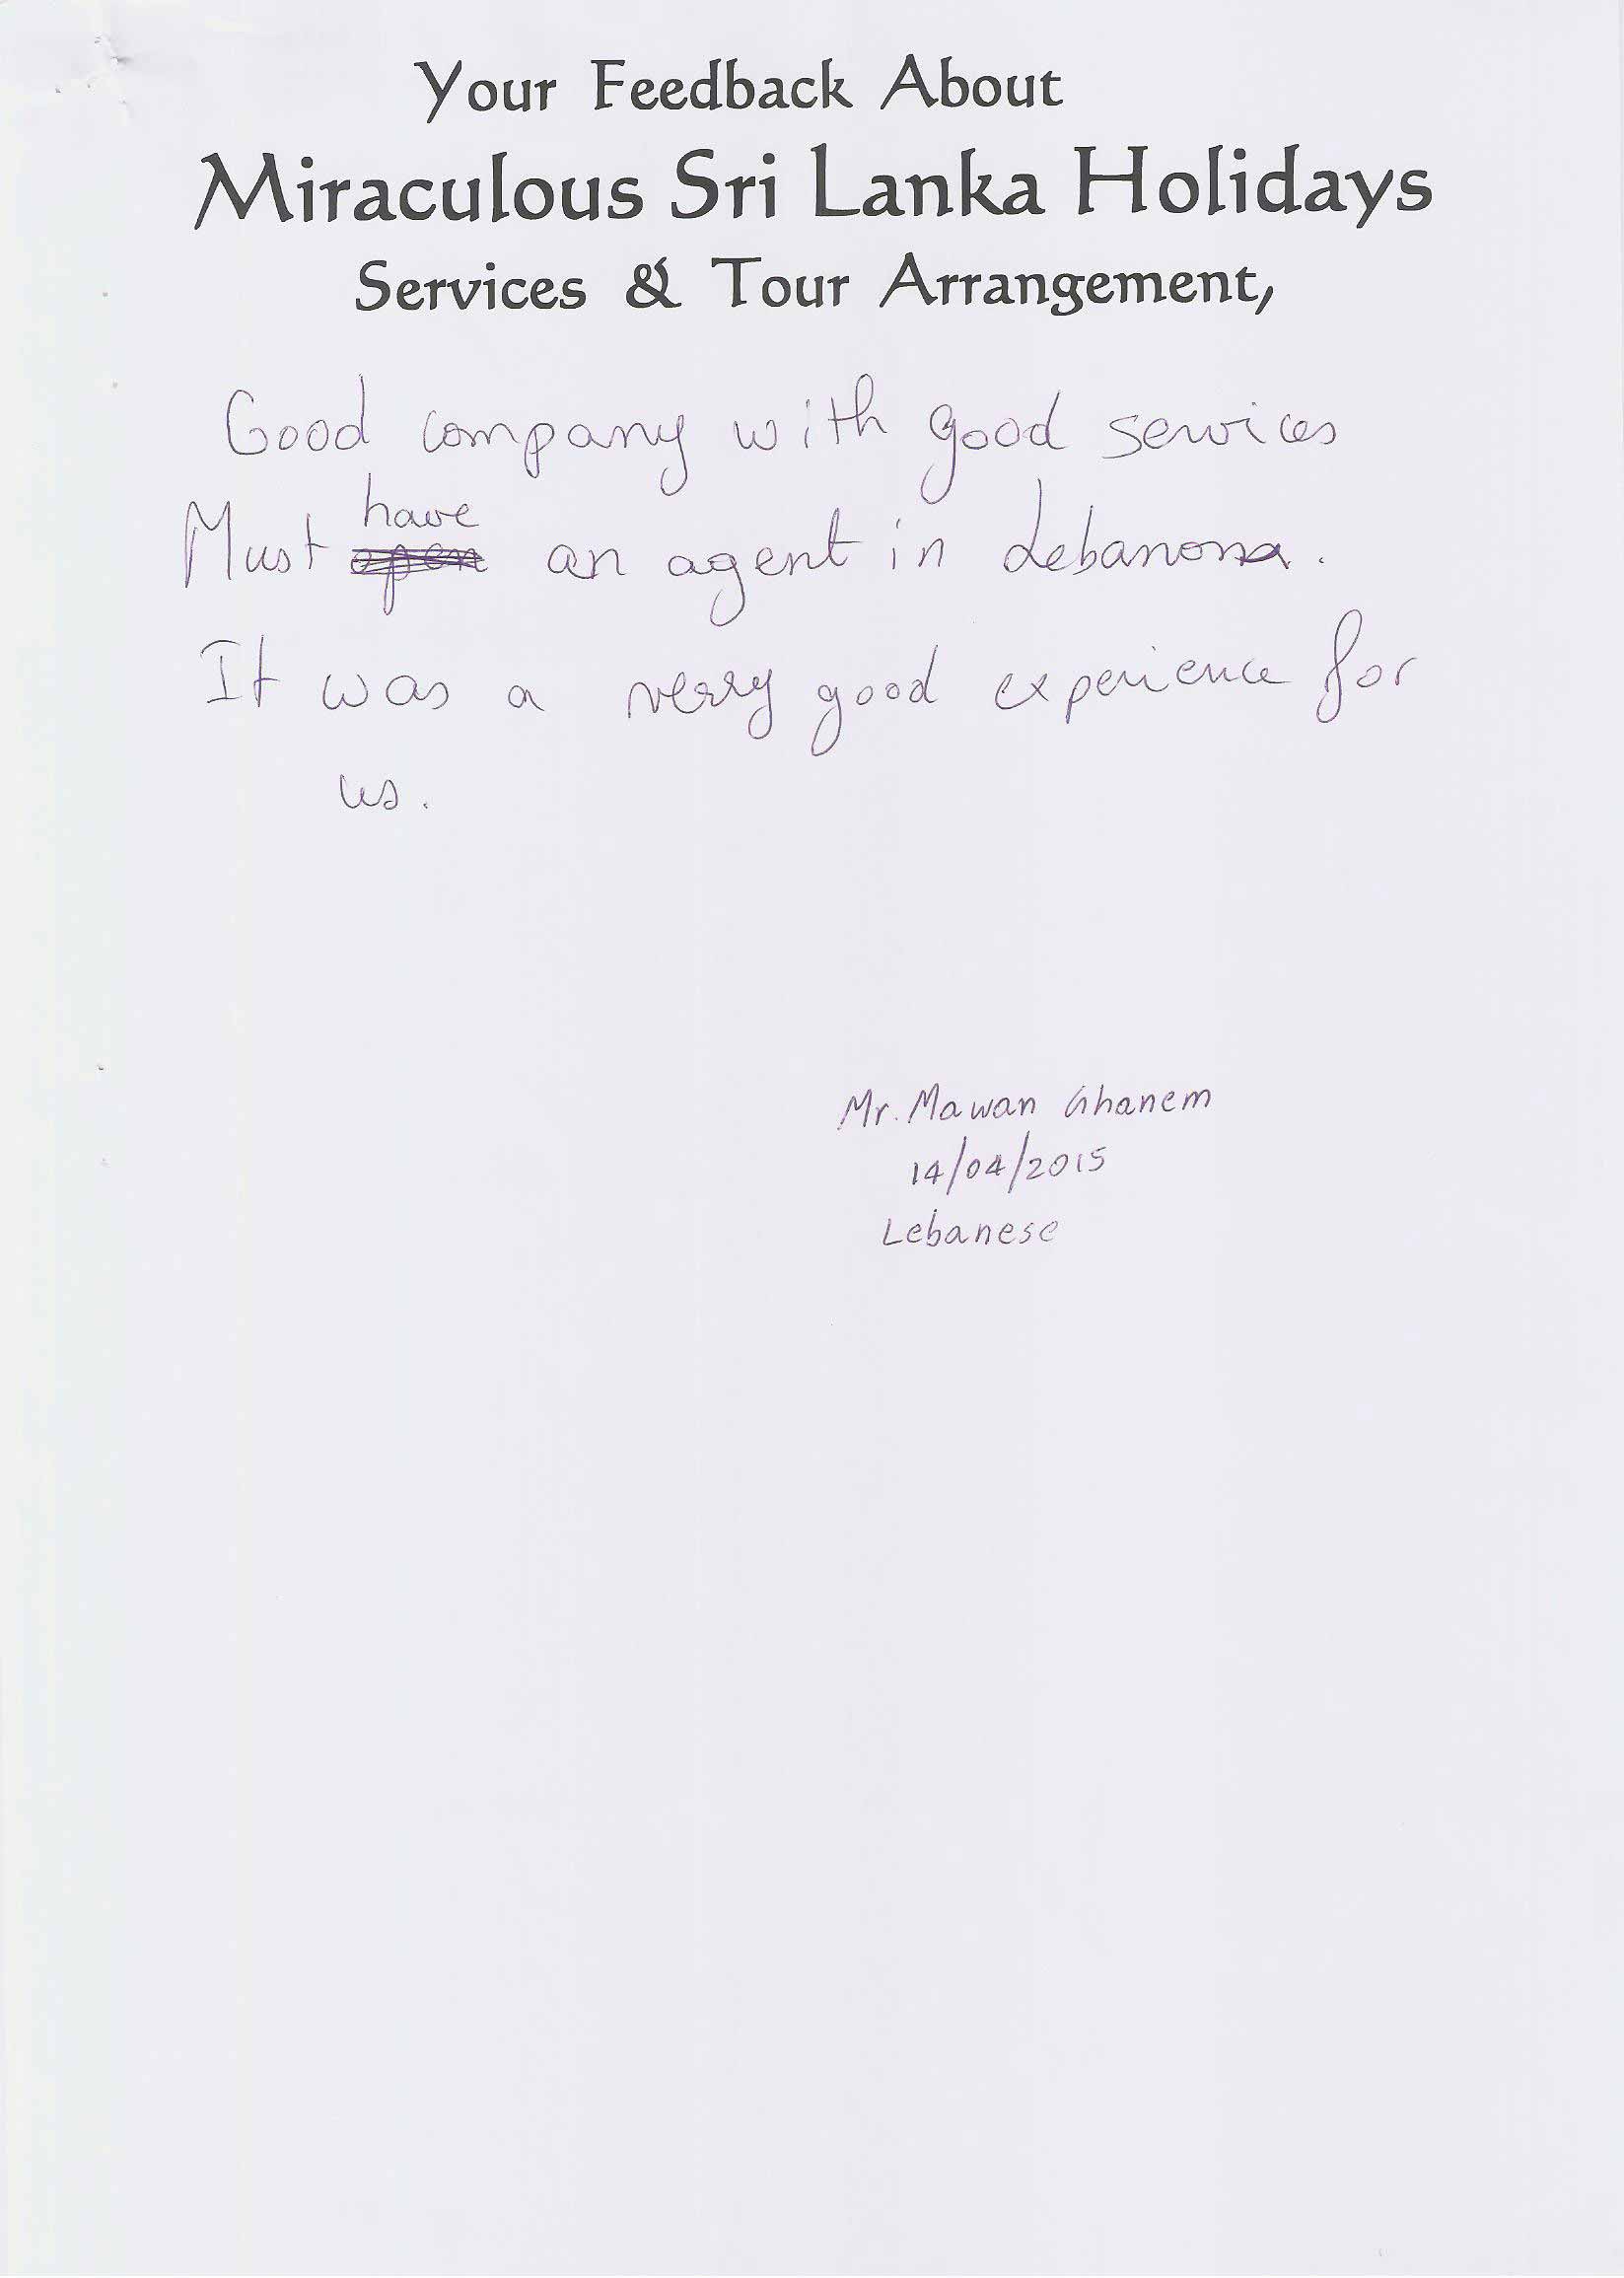 Your Feedback About
Miraculous Sri Lanka Holidays
Services & Tour Arrangement,
Good company with good services
Must have an agent in Lebanon.
It was a very good experience for
us.
Mr. Mawan Ghanem
14/04/2015
Lebanese